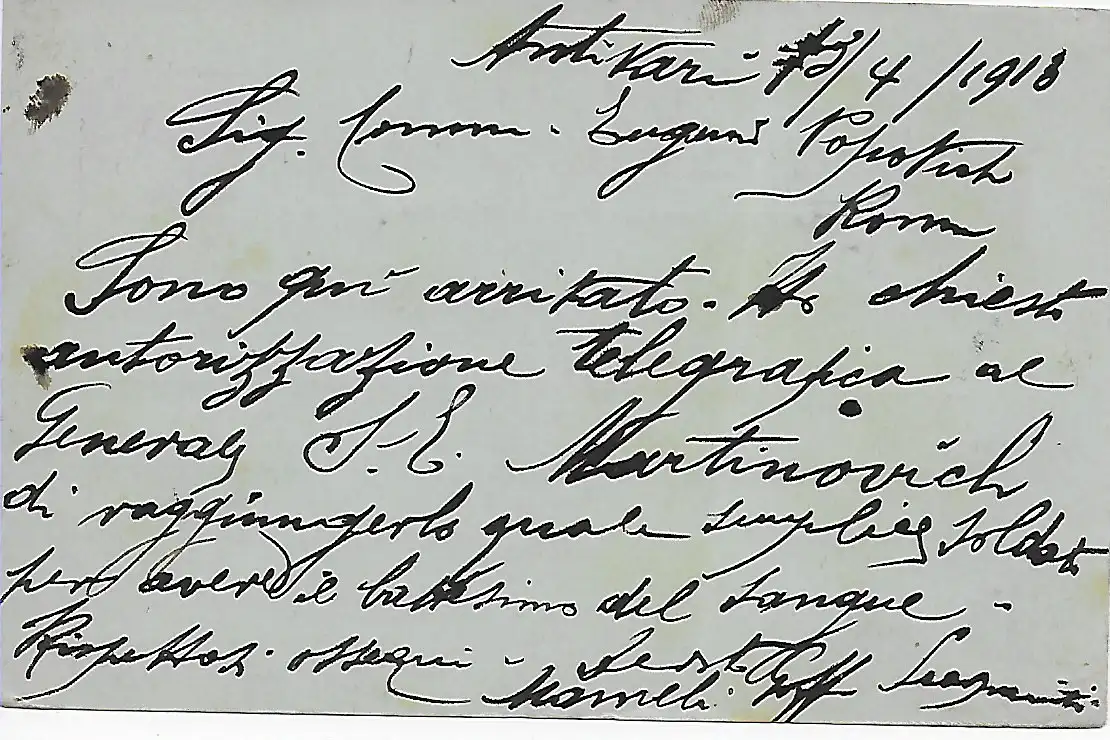 Antivari 13/4/1913
Sig. Comm. Eugenio Popovich
Roma
Sono quì arrivato. Ho chiesto
autorizzazione telegrafica al
General S. E. Martinovich
di raggiungerlo quale semplice soldato
per avere il battesimo del sangue -
Rispettosi ossequi -
Mameli